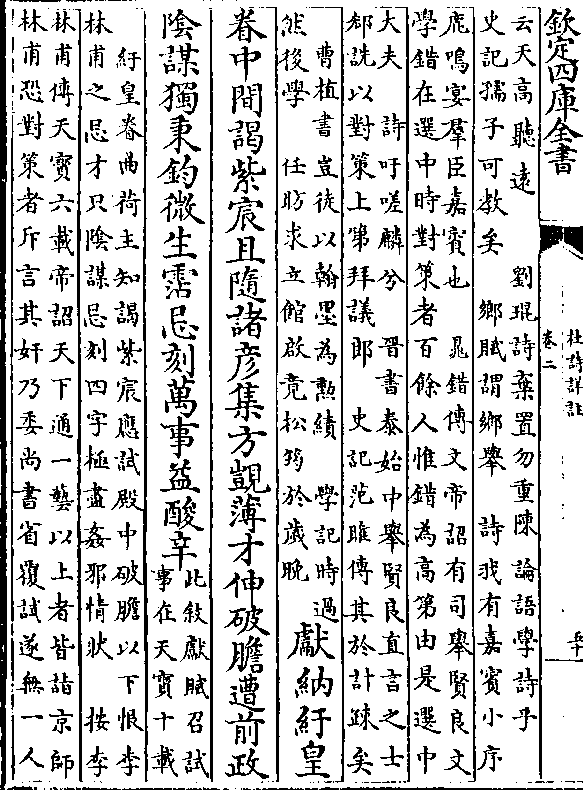 欽定四庫全書
杜詩詳註
卷二
云天高聽遠　劉琨詩棄置勿重陳　論語學詩乎
史記孺子可教矣　鄉賦謂鄉舉　詩我有嘉賓小序
鹿鳴宴羣臣嘉賓也　晁錯傳文帝詔有司舉賢良文
學錯在選中時對策者百餘人惟錯為高第由是選中
大夫　詩吁嗟麟兮　晉書泰始中舉賢良直言之士
郄詵以對策上第拜議郎　史記范雎傳其於計疎矣
曹植書豈徒以翰墨為勲績　學記時過
然後學　任昉求立館啟竟松筠於歲晚
獻納紆皇
眷中間謁紫宸且隨諸彦集方覬薄才伸破膽遭前政
陰謀獨秉鈞微生霑忌刻萬事益酸辛
此敘獻賦召試
事在天寶十載
紆皇眷曲荷主知謁紫宸應試殿中破膽以下恨李
林甫之忌才只陰謀忌刻四字極盡姦邪情狀　按李
林甫傳天寶六載帝詔天下通一藝以上者皆詣京師
林甫恐對策者斥言其奸乃委尚書省覆試遂無一人